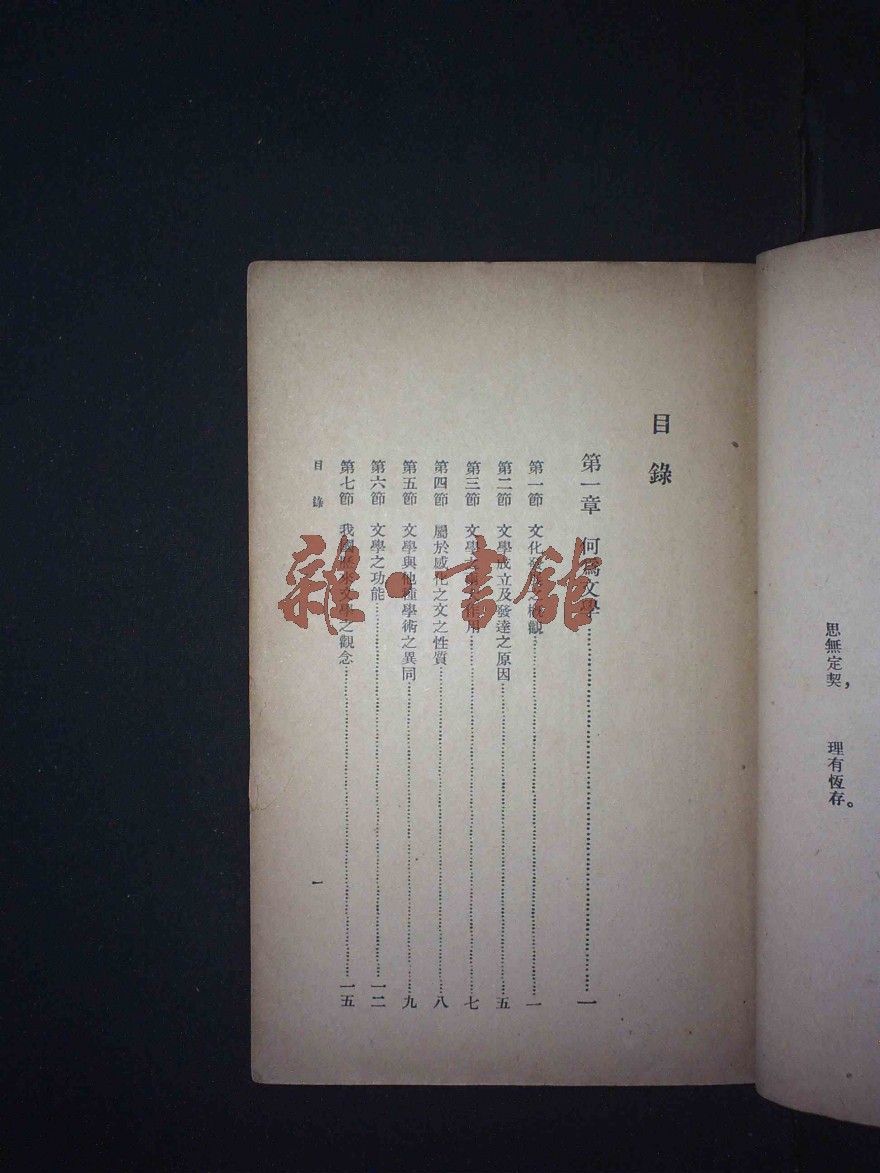 思無定契，
理有恆存。
目錄
第一章 何爲文學……一
第一節 文化發展之概觀……一
第二節 文學成立及發達之原因……五
第三節 文學之作用……七
第四節 屬於感化之文之性質……八
第五節 文學與他種學術之異同……九
第六節 文學之功能……一二
第七節 我國歷來文學之觀念……一五
目錄
一
雜·書館